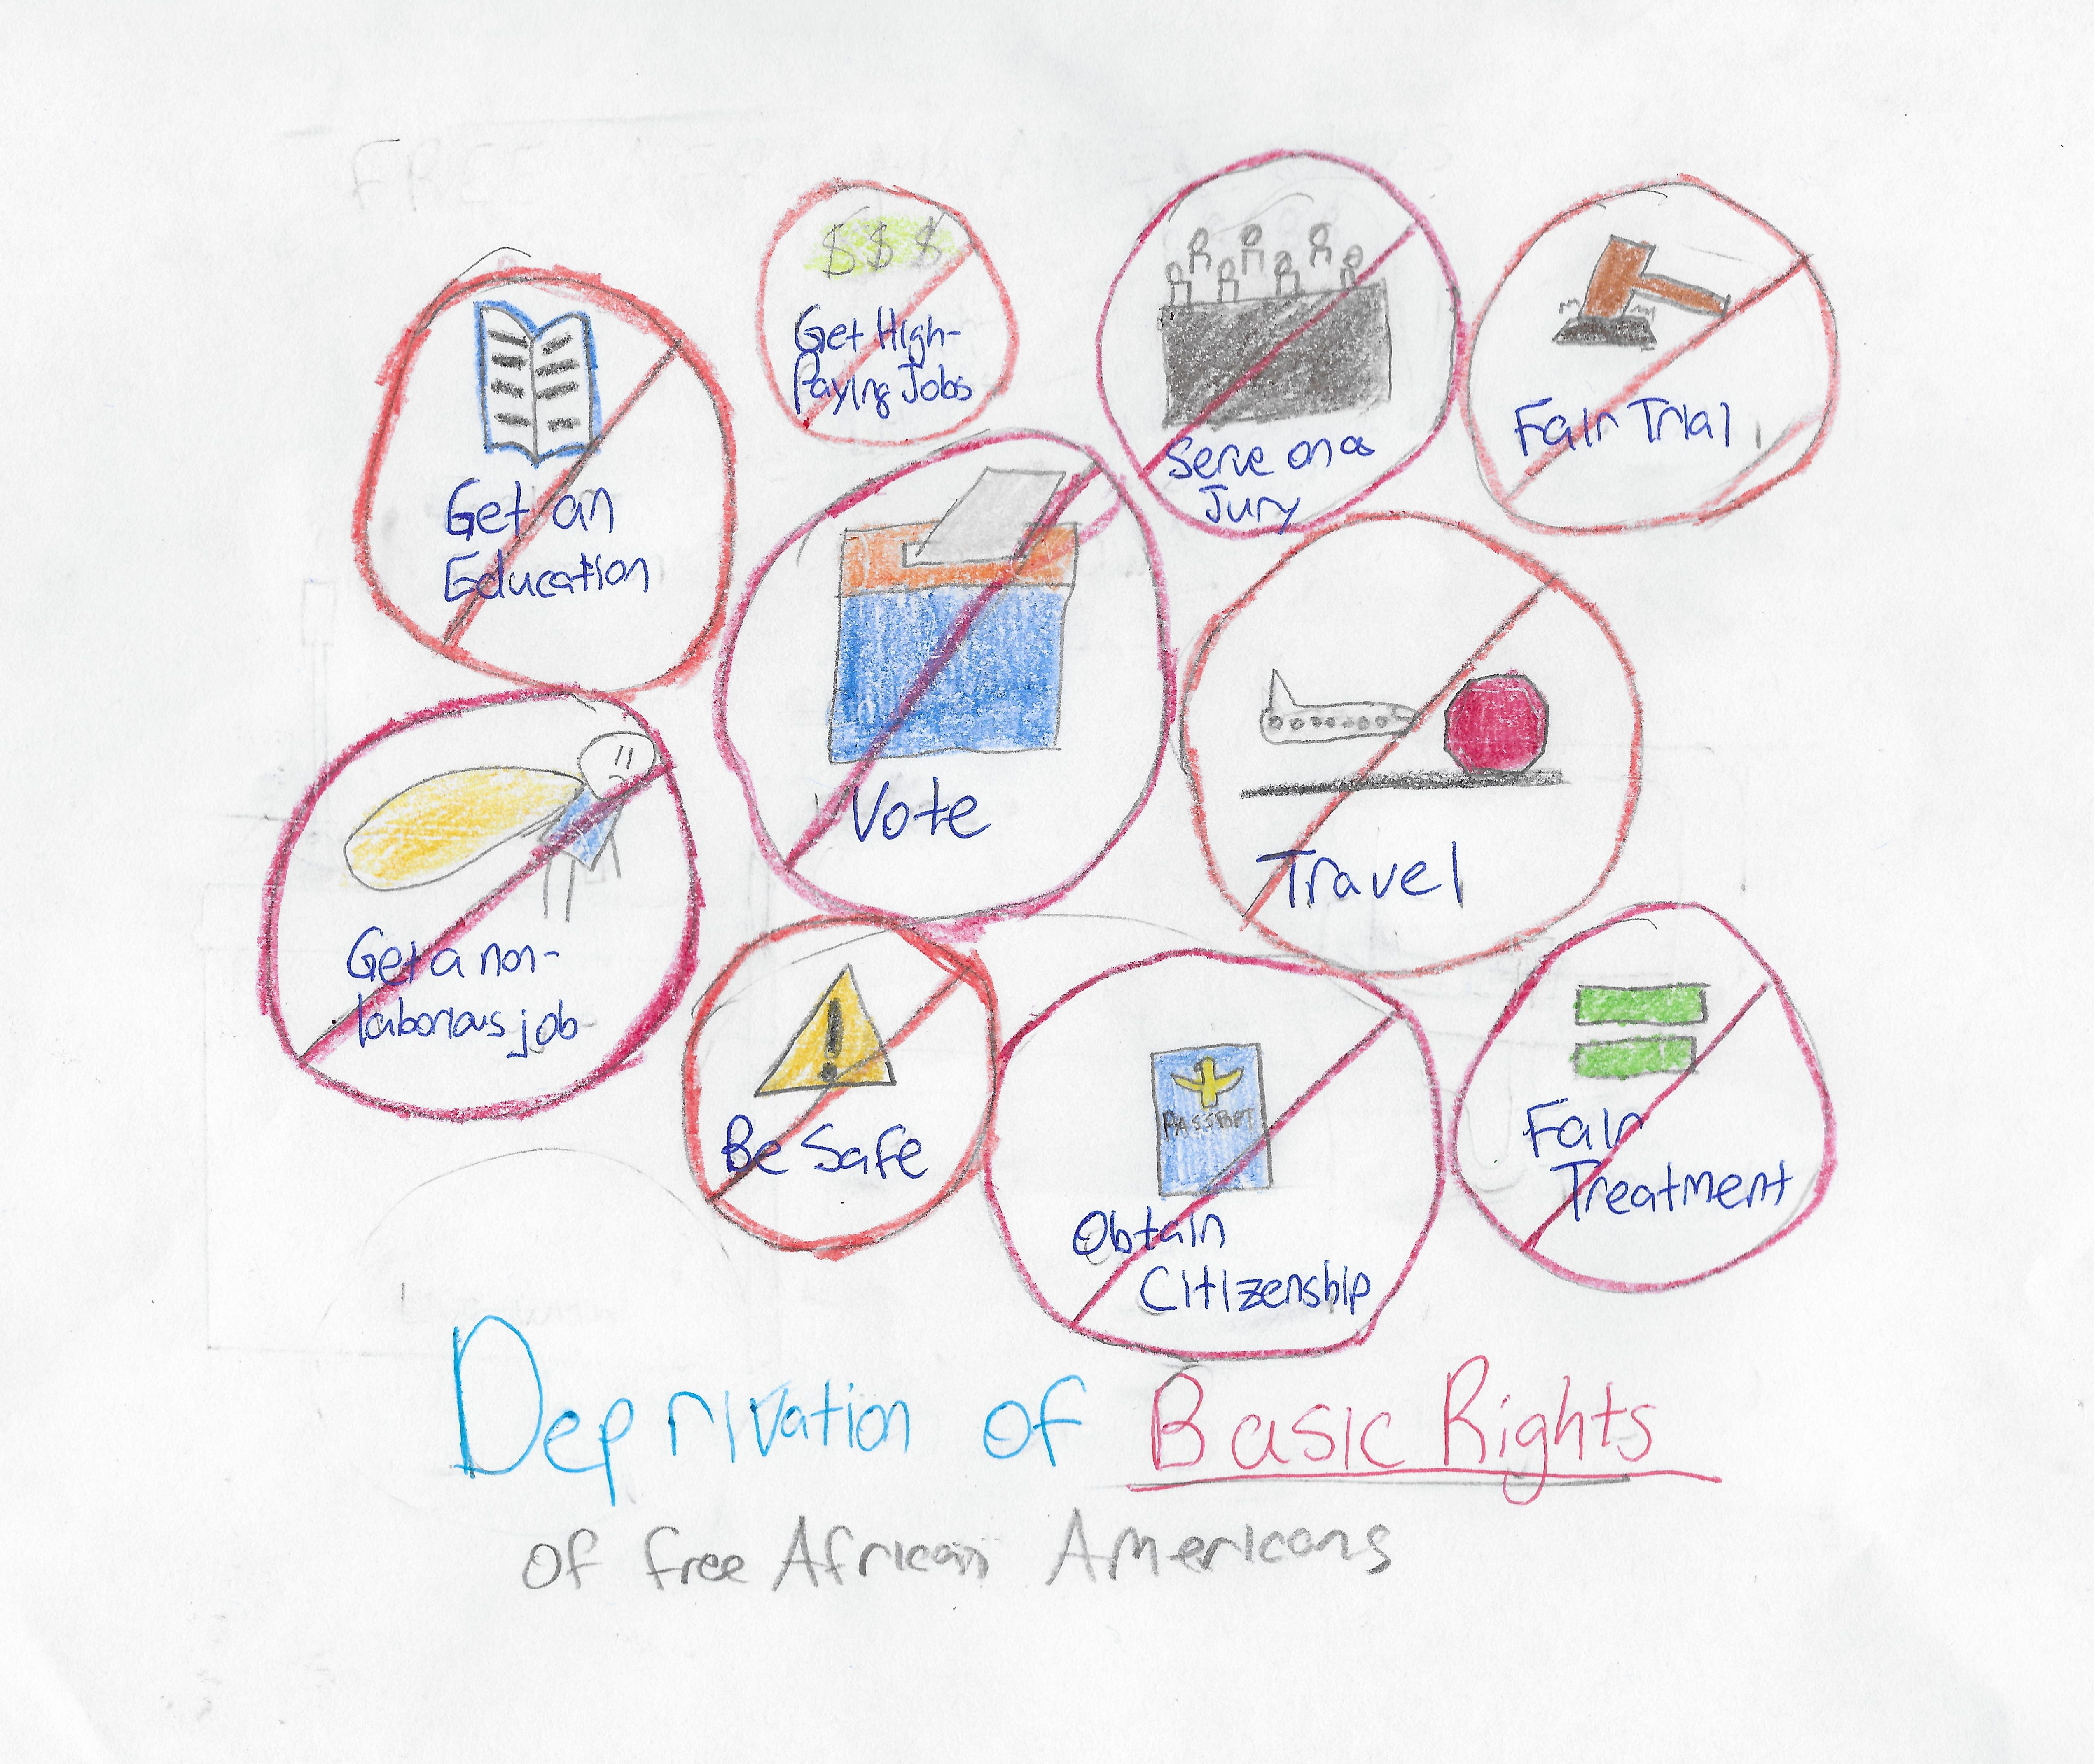 FREE
$ $ $
Get High-
Paying Jobs
Serve on a
Jury
Fair Trial
Get an
Education
Vote
Travel
Get a non-
laborious job
!
Be Safe
PASSPORT
Obtain
Citizenship
Fair
Treatment
Deprivation of Basic Rights
of free African Americans